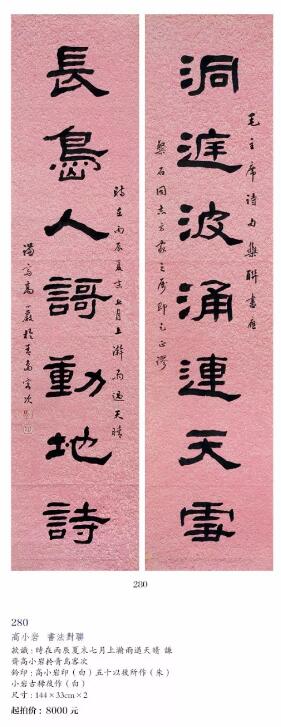 洞庭波涌連天雪
毛主席诗句集聯書應
磐石同志方家之属即乞正谬
長島人謌動地詩
時在丙辰夏末七月上澣雨過天晴
謙齋高小岩於青島客次
280
280
高小岩 書法對聯
款識:時在丙辰夏末七月上瀚雨過天晴 謙
齋高小岩於青島客次
鈐印:高小岩印(白)五十以後所作(朱)
小岩古稀後作(白)
尺寸:144×33cm×2
起拍价:8000 元